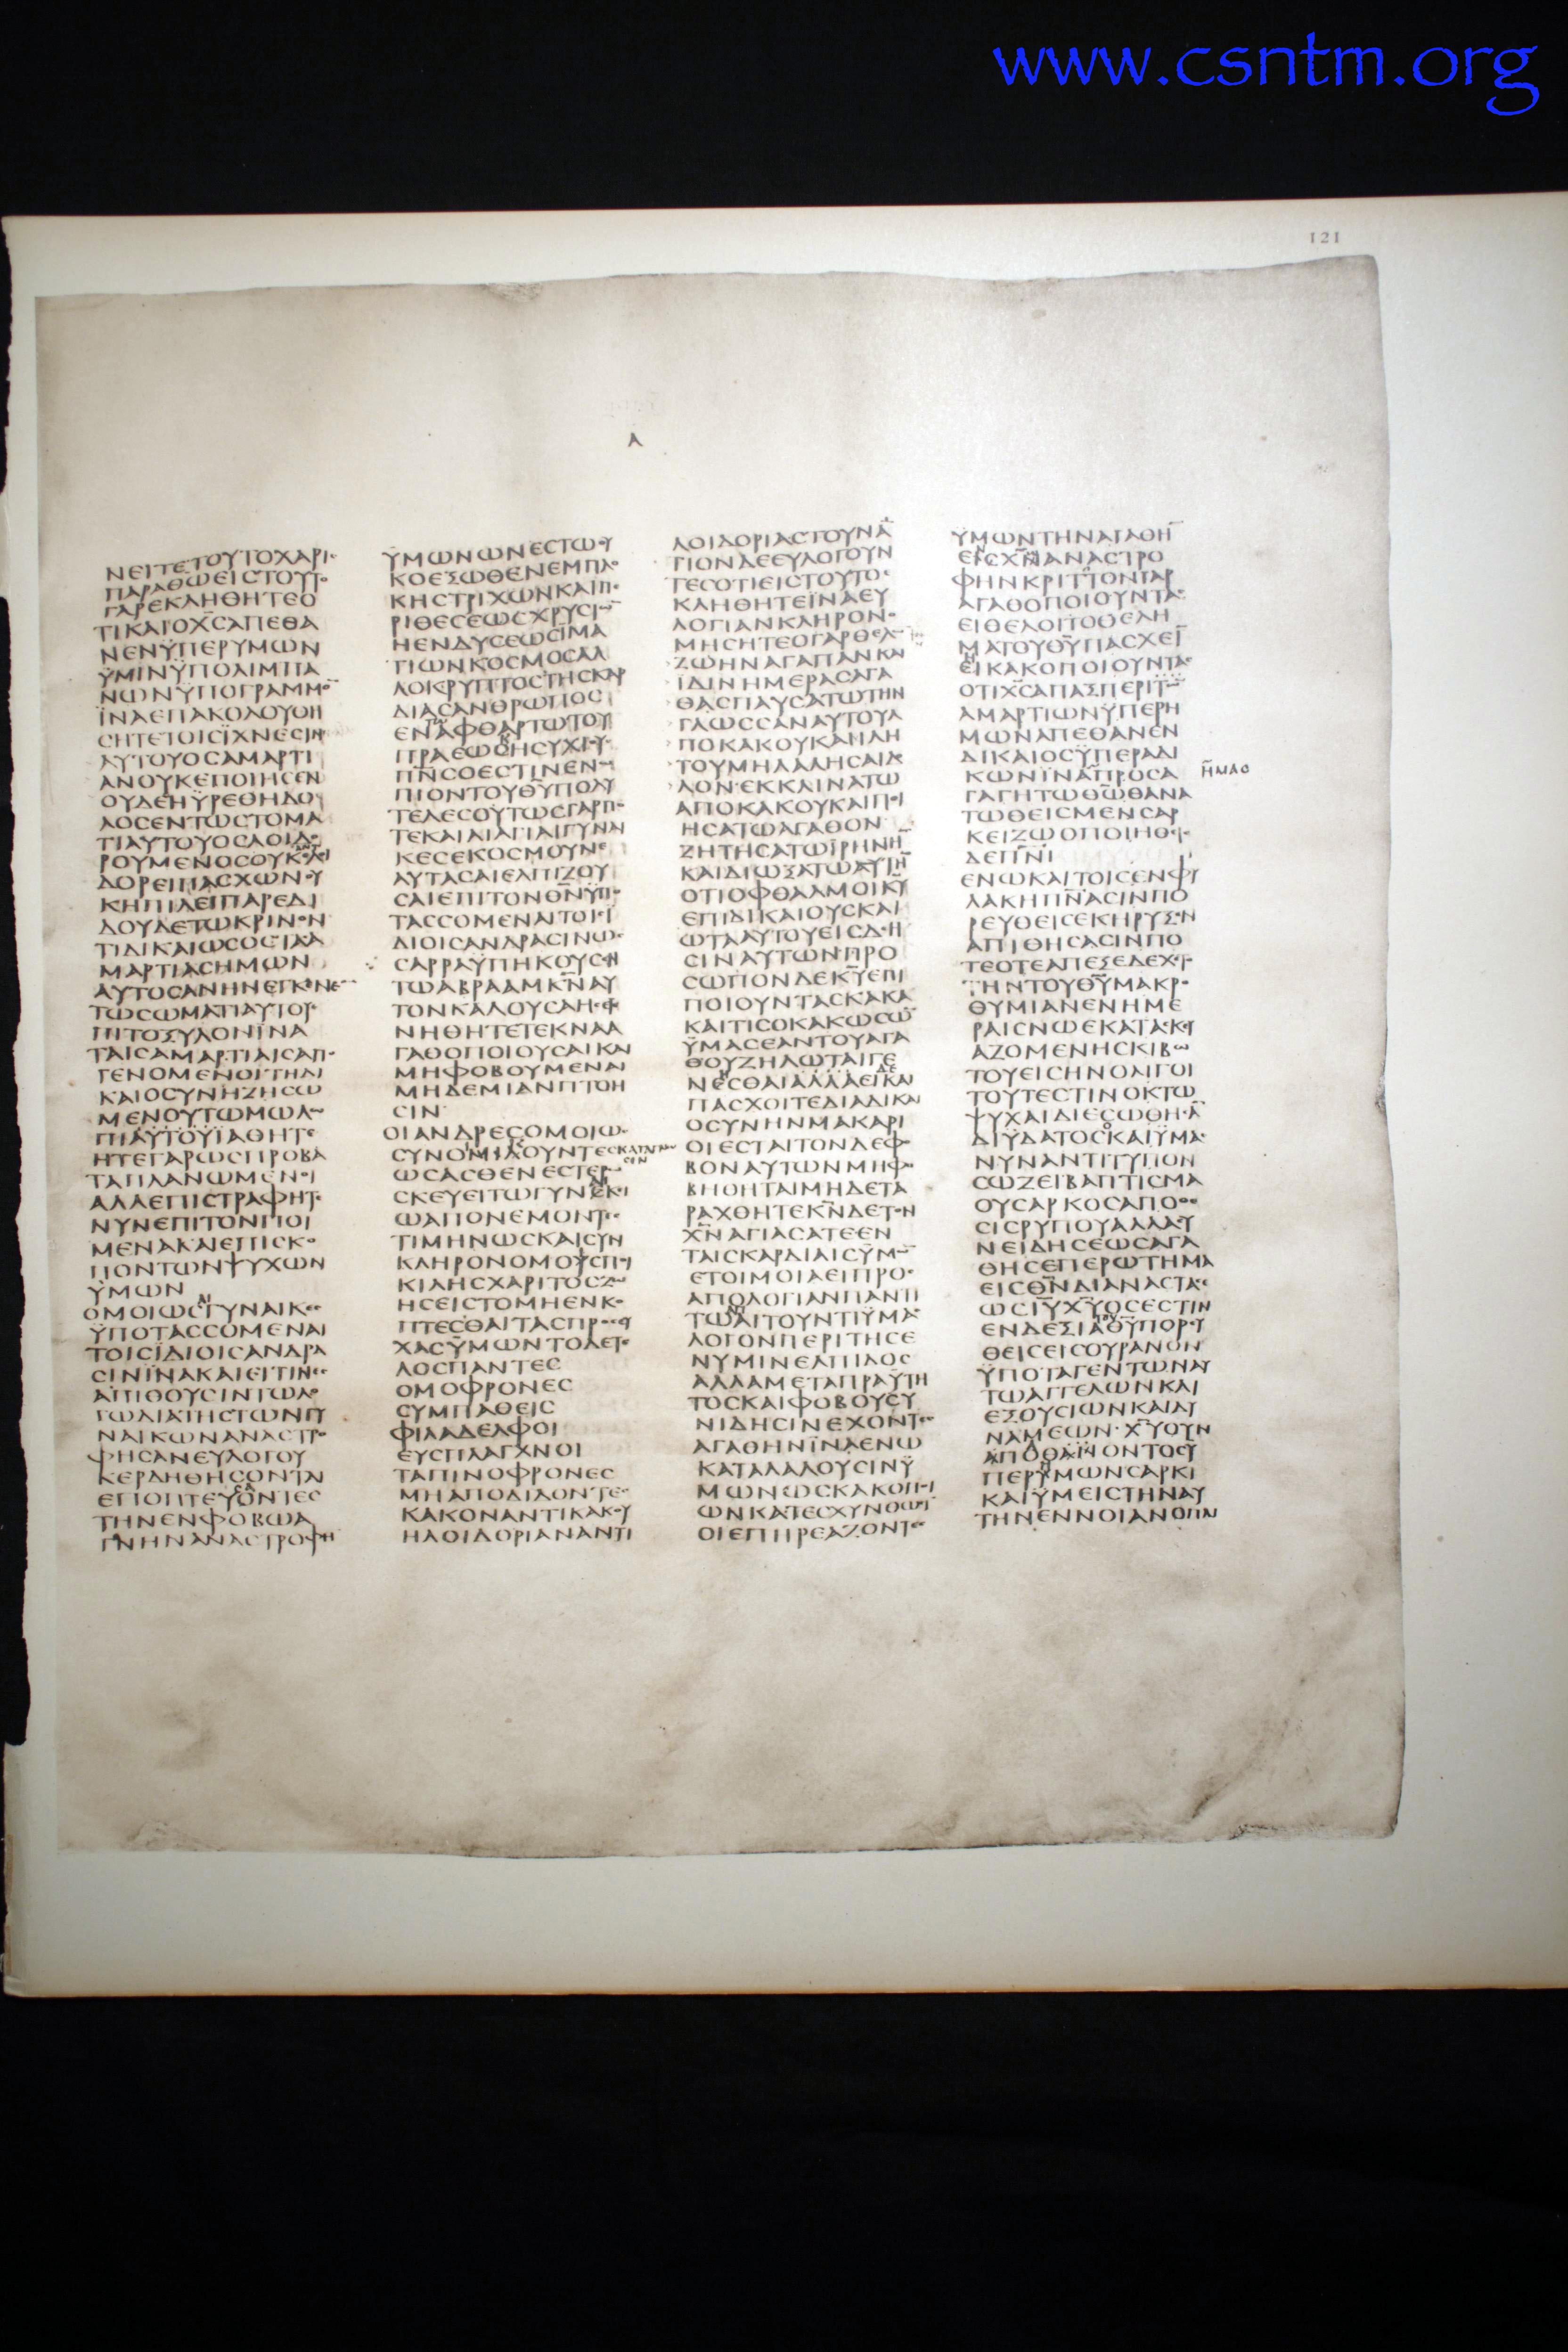 www.csntm.org
121
Α
ΝΕΙΤΕΤΟΥΤΟΧΑΡΙ
ΠΑΡΑΘΩΕΙΣΤΟΥΤΟ
ΓΑΡΕΚΛΗΘΗΤΕΟ
ΤΙΚΑΙΟΧ̅Ϲ̅ΑΠΕΘΑ
ΝΕΝΫΠΕΡΥΜΩΝ
ΫΜΙΝΫΠΟΛΙΜΠΑ
ΝΩΝΫΠΟΓΡΑΜΜΟ̅
ΪΝΑΕΠΑΚΟΛΟΥΘΗ
ϹΗΤΕΤΟΙϹΪΧΝΕϹΙΝ
ΑΥΤΟΥΟϹΑΜΑΡΤΙ
ΑΝΟΥΚΕΠΟΙΗϹΕΝ
ΟΥΔΕΗΫΡΕΘΗΔΟ
ΛΟϹΕΝΤΩϹΤΟΜΑ
ΤΙΑΥΤΟΥΟϹΛΟΙΔΟ
ΡΟΥΜΕΝΟϹΟΥΚ
ΔΟΡΕΙΠΑϹΧΩΝΟΥ
ΚΗΠΙΛΕΙΠΑΡΕΔΙ
ΔΟΥΔΕΤΩΚΡΙΝΟΝ
ΤΙΔΙΚΑΙΩϹΟϹΤΑϹΑ
ΜΑΡΤΙΑϹΗΜΩΝ
ΑΥΤΟϹΑΝΗΝΕΓΚΕΝΕ̅
ΤΩϹΩΜΑΤΙΑΥΤΟΥ
ΕΠΙΤΟΞΥΛΟΝΪΝΑ
ΤΑΙϹΑΜΑΡΤΙΑΙϹΑΠΟ
ΓΕΝΟΜΕΝΟΙΤΗΔΙ
ΚΑΙΟϹΥΝΗΖΗϹΩ
ΜΕΝΟΥΤΩΜΩΛΩ
ΠΙΑΥΤΟΥΪΑΘΗΤΕ
ΗΤΕΓΑΡΩϹΠΡΟΒΑ
ΤΑΠΛΑΝΩΜΕΝΟΙ
ΑΛΛΕΠΙϹΤΡΑΦΗΤΕ
ΝΥΝΕΠΙΤΟΝΠΟΙ
ΜΕΝΑΚΑΙΕΠΙϹΚΟ
ΠΟΝΤΩΝΨΥΧΩΝ
ΫΜΩΝ
ΟΜΟΙΩϹΓΥΝΑΙΚΕϹ
ΫΠΟΤΑϹϹΟΜΕΝΑΙ
ΤΟΙϹΪΔΙΟΙϹΑΝΔΡΑ
ϹΙΝΪΝΑΚΑΙΕΙΤΙΝΕϹ
ΑΠΙΘΟΥϹΙΝΤΩΛΟ
ΓΩΔΙΑΤΗϹΤΩΝΓΥ
ΝΑΙΚΩΝΑΝΑϹΤΡΟ
ΦΗϹΑΝΕΥΛΟΓΟΥ
ΚΕΡΔΗΘΗϹΟΝΤΑΙ
ΕΠΟΠΤΕΥΟΝΤΕϹ
ΤΗΝΕΝΦΟΒΩΑ
ΓΝΗΝΑΝΑϹΤΡΟΦΗ
ΫΜΩΝΩΝΕϹΤΩΟΥ
ΚΟΕΞΩΘΕΝΕΜΠΛΟ
ΚΗϹΤΡΙΧΩΝΚΑΙΠΕ
ΡΙΘΕϹΕΩϹΧΡΥϹΙΩ̅
ΗΕΝΔΥϹΕΩϹΪΜΑ
ΤΙΩΝΚΟϹΜΟϹΑΛ
ΛΟΚΡΥΠΤΟϹΤΗϹΚΑΡ
ΔΙΑϹΑΝΘΡΩΠΟϹ
ΕΝΑΦΘΑΡΤΩΤΟΥ
ΠΡΑΕΩϹΗϹΥΧΙΟΥ
ΠΝ̅Ϲ̅ΟΕϹΤΙΝΕΝΩ
ΠΙΟΝΤΟΥΘ̅Υ̅ΠΟΛΥ
ΤΕΛΕϹΟΥΤΩϹΓΑΡΠΟ
ΤΕΚΑΙΑΙΑΓΙΑΙΓΥΝΑΙ
ΚΕϹΕΚΟϹΜΟΥΝΕ
ΑΥΤΑϹΑΙΕΛΠΙΖΟΥ
ϹΑΙΕΠΙΤΟΝΘ̅Ν̅ΫΠΟ
ΤΑϹϹΟΜΕΝΑΙΤΟΙϹΪ
ΔΙΟΙϹΑΝΔΡΑϹΙΝΩϹ
ϹΑΡΡΑΫΠΗΚΟΥϹΕΝ
ΤΩΑΒΡΑΑΜΚ̅Ν̅ΑΥ
ΤΟΝΚΑΛΟΥϹΑΗϹΕΓΕ
ΝΗΘΗΤΕΤΕΚΝΑΑ
ΓΑΘΟΠΟΙΟΥϹΑΙΚΑΙ
ΜΗΦΟΒΟΥΜΕΝΑΙ
ΜΗΔΕΜΙΑΝΠΤΟΗ
ϹΙΝ
ΟΙΑΝΔΡΕϹΟΜΟΙΩϹ
ϹΥΝΟΜΙΛΟΥΝΤΕϹΚΑΤΑΓΝΩ
ϹΙΝ
ΩϹΑϹΘΕΝΕϹΤΕΡΩ
ϹΚΕΥΕΙΤΩΓΥΝΕΚΙ
ΩΑΠΟΝΕΜΟΝΤΕϹ
ΤΙΜΗΝΩϹΚΑΙϹΥΝ
ΚΛΗΡΟΝΟΜΟΥϹΠΟΙ
ΚΙΛΗϹΧΑΡΙΤΟϹΖΩ
ΗϹΕΙϹΤΟΜΗΕΝΚΟ
ΠΤΕϹΘΑΙΤΑϹΠΡΟϹΕΥ
ΧΑϹΫΜΩΝΤΟΔΕΤΕ
ΛΟϹΠΑΝΤΕϹ
ΟΜΟΦΡΟΝΕϹ
ϹΥΜΠΑΘΕΙϹ
ΦΙΛΑΔΕΛΦΟΙ
ΕΥϹΠΛΑΓΧΝΟΙ
ΤΑΠΙΝΟΦΡΟΝΕϹ
ΜΗΑΠΟΔΙΔΟΝΤΕϹ
ΚΑΚΟΝΑΝΤΙΚΑΚΟΥ
ΗΛΟΙΔΟΡΙΑΝΑΝΤΙ
ΛΟΙΔΟΡΙΑϹΤΟΥΝΑ̅
ΤΙΟΝΔΕΕΥΛΟΓΟΥΝ
ΤΕϹΟΤΙΕΙϹΤΟΥΤΟ
ΚΛΗΘΗΤΕΪΝΑΕΥ
ΛΟΓΙΑΝΚΛΗΡΟΝΟ
ΜΗϹΗΤΕΟΓΑΡΘΕΛΩ̅
ΖΩΗΝΑΓΑΠΑΝΚΑΙ
ΪΔΙΝΗΜΕΡΑϹΑΓΑ
ΘΑϹΠΑΥϹΑΤΩΤΗΝ
ΓΛΩϹϹΑΝΑΥΤΟΥΑ
ΠΟΚΑΚΟΥΚΑΙΧΙΛΗ
ΤΟΥΜΗΛΑΛΗϹΑΙΔΟ
ΛΟΝΕΚΚΛΙΝΑΤΩ
ΑΠΟΚΑΚΟΥΚΑΙΠΟΙ
ΗϹΑΤΩΑΓΑΘΟΝ
ΖΗΤΗϹΑΤΩΪΡΗΝΗ̅
ΚΑΙΔΙΩΞΑΤΩΑΥΤΗ̅
ΟΤΙΟΦΘΑΛΜΟΙΚ̅Υ̅
ΕΠΙΔΙΚΑΙΟΥϹΚΑΙ
ΩΤΑΑΥΤΟΥΕΙϹΔΕΗ
ϹΙΝΑΥΤΩΝΠΡΟ
ϹΩΠΟΝΔΕΚ̅Υ̅ΕΠΙ
ΠΟΙΟΥΝΤΑϹΚΑΚΑ
ΚΑΙΤΙϹΟΚΑΚΩϹΩ̅
ΫΜΑϹΕΑΝΤΟΥΑΓΑ
ΘΟΥΖΗΛΩΤΑΙΓΕ
ΝΕϹΘΑΙΑΛΛΑΕΙΚΑΙ
ΠΑϹΧΟΙΤΕΔΙΑΔΙΚΑΙ
ΟϹΥΝΗΝΜΑΚΑΡΙ
ΟΙΕϹΤΑΙΤΟΝΔΕΦΟ
ΒΟΝΑΥΤΩΝΜΗΦΟ
ΒΗΘΗΤΑΙΜΗΔΕΤΑ
ΡΑΧΘΗΤΕΚ̅Ν̅ΔΕΤΟΝ
Χ̅Ν̅ΑΓΙΑϹΑΤΕΕΝ
ΤΑΙϹΚΑΡΔΙΑΙϹΫΜΩ̅
ΕΤΟΙΜΟΙΑΕΙΠΡΟϹ
ΑΠΟΛΟΓΙΑΝΠΑΝΤΙ
ΤΩΑΙΤΟΥΝΤΙΫΜΑϹ
ΛΟΓΟΝΠΕΡΙΤΗϹΕ
ΝΥΜΙΝΕΛΠΙΔΟϹ
ΑΛΛΑΜΕΤΑΠΡΑΫΤΗ
ΤΟϹΚΑΙΦΟΒΟΥϹΥ
ΝΙΔΗϹΙΝΕΧΟΝΤΕϹ
ΑΓΑΘΗΝΪΝΑΕΝΩ
ΚΑΤΑΛΑΛΟΥϹΙΝΫ
ΜΩΝΩϹΚΑΚΟΠΟΙ
ΩΝΚΑΤΕϹΧΥΝΘΩϹΙ̅
ΟΙΕΠΗΡΕΑΖΟΝΤΕϹ
ΫΜΩΝΤΗΝΑΓΑΘΗ̅
ΕΙϹΧ̅Ν̅ΑΝΑϹΤΡΟ
ΦΗΝΚΡΙΤΤΟΝΓΑΡ
ΑΓΑΘΟΠΟΙΟΥΝΤΑϹ
ΕΙΘΕΛΟΙΤΟΘΕΛΗ
ΜΑΤΟΥΘ̅Υ̅ΠΑϹΧΕΙ̅
ΕΙΚΑΚΟΠΟΙΟΥΝΤΑϹ
ΟΤΙΧ̅Ϲ̅ΑΠΑΞΠΕΡΙΤΩ̅
ΑΜΑΡΤΙΩΝΫΠΕΡΗ
ΜΩΝΑΠΕΘΑΝΕΝ
ΔΙΚΑΙΟϹΫΠΕΡΑΔΙ
ΚΩΝΪΝΑΠΡΟϹΑ
ΗΜΑϹ
ΓΑΓΗΤΩΘ̅Ω̅ΘΑΝΑ
ΤΩΘΕΙϹΜΕΝϹΑΡ
ΚΕΙΖΩΟΠΟΙΗΘΕΙϹ
ΔΕΠ̅Ν̅Ι̅
ΕΝΩΚΑΙΤΟΙϹΕΝΦΥ
ΛΑΚΗΠΝ̅ΑϹΙΝΠΟ
ΡΕΥΘΕΙϹΕΚΗΡΥΞΕΝ
ΑΠΙΘΗϹΑϹΙΝΠΟ
ΤΕΟΤΕΑΠΕΞΕΔΕΧΕ
ΤΗΝΤΟΥΘ̅Υ̅ΜΑΚΡΟ
ΘΥΜΙΑΝΕΝΗΜΕ
ΡΑΙϹΝΩΕΚΑΤΑϹΚΕΥ
ΑΖΟΜΕΝΗϹΚΙΒΩ
ΤΟΥΕΙϹΗΝΟΛΙΓΟΙ
ΤΟΥΤΕϹΤΙΝΟΚΤΩ
ΨΥΧΑΙΔΙΕϹΩΘΗϹΑ̅
ΔΙΫΔΑΤΟϹΚΑΙΫΜΑϹ
ΝΥΝΑΝΤΙΤΥΠΟΝ
ϹΩΖΕΙΒΑΠΤΙϹΜΑ
ΟΥϹΑΡΚΟϹΑΠΟΘΕ
ϹΙϹΡΥΠΟΥΑΛΛΑϹΥ
ΝΕΙΔΗϹΕΩϹΑΓΑ
ΘΗϹΕΠΕΡΩΤΗΜΑ
ΕΙϹΘ̅Ν̅ΔΙΑΝΑϹΤΑϹΕ
ΩϹΙ̅Υ̅Χ̅Υ̅ΟϹΕϹΤΙΝ
ΕΝΔΕΞΙΑΘ̅Υ̅ΠΟΡΕΥ
ΘΕΙϹΕΙϹΟΥΡΑΝΟΝ
ΫΠΟΤΑΓΕΝΤΩΝΑΥ
ΤΩΑΓΓΕΛΩΝΚΑΙ
ΕΞΟΥϹΙΩΝΚΑΙΔΥ
ΝΑΜΕΩΝΧ̅Υ̅ΟΥΝ
ΑΠΟΘΑΝΟΝΤΟϹΫ
ΠΕΡΫΜΩΝϹΑΡΚΙ
ΚΑΙΫΜΕΙϹΤΗΝΑΥ
ΤΗΝΕΝΝΟΙΑΝΟΠΛΙ